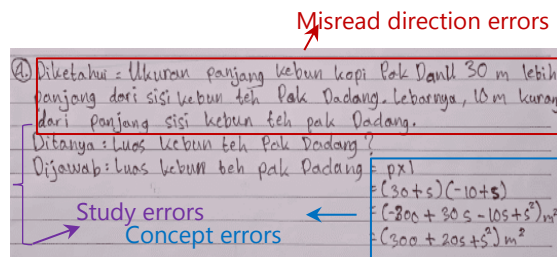 Misread direction errors
A. Diketahui = Ukuran panjang kebun kopi Pak Danu 30 m lebih
panjang dari sisi kebun teh Pak Dadang. Lebarnya, 10 m kurang
dari panjang sisi kebun teh pak Dadang.
Ditanya = Luas kebun teh Pak Dadang?
Dijawab = Luas kebun teh pak Dadang = p x l
= (30+s)(-10+s)
= (-300 + 30s - 10s + s²) m²
= (300 + 20s + s²) m²
Study errors
Concept errors